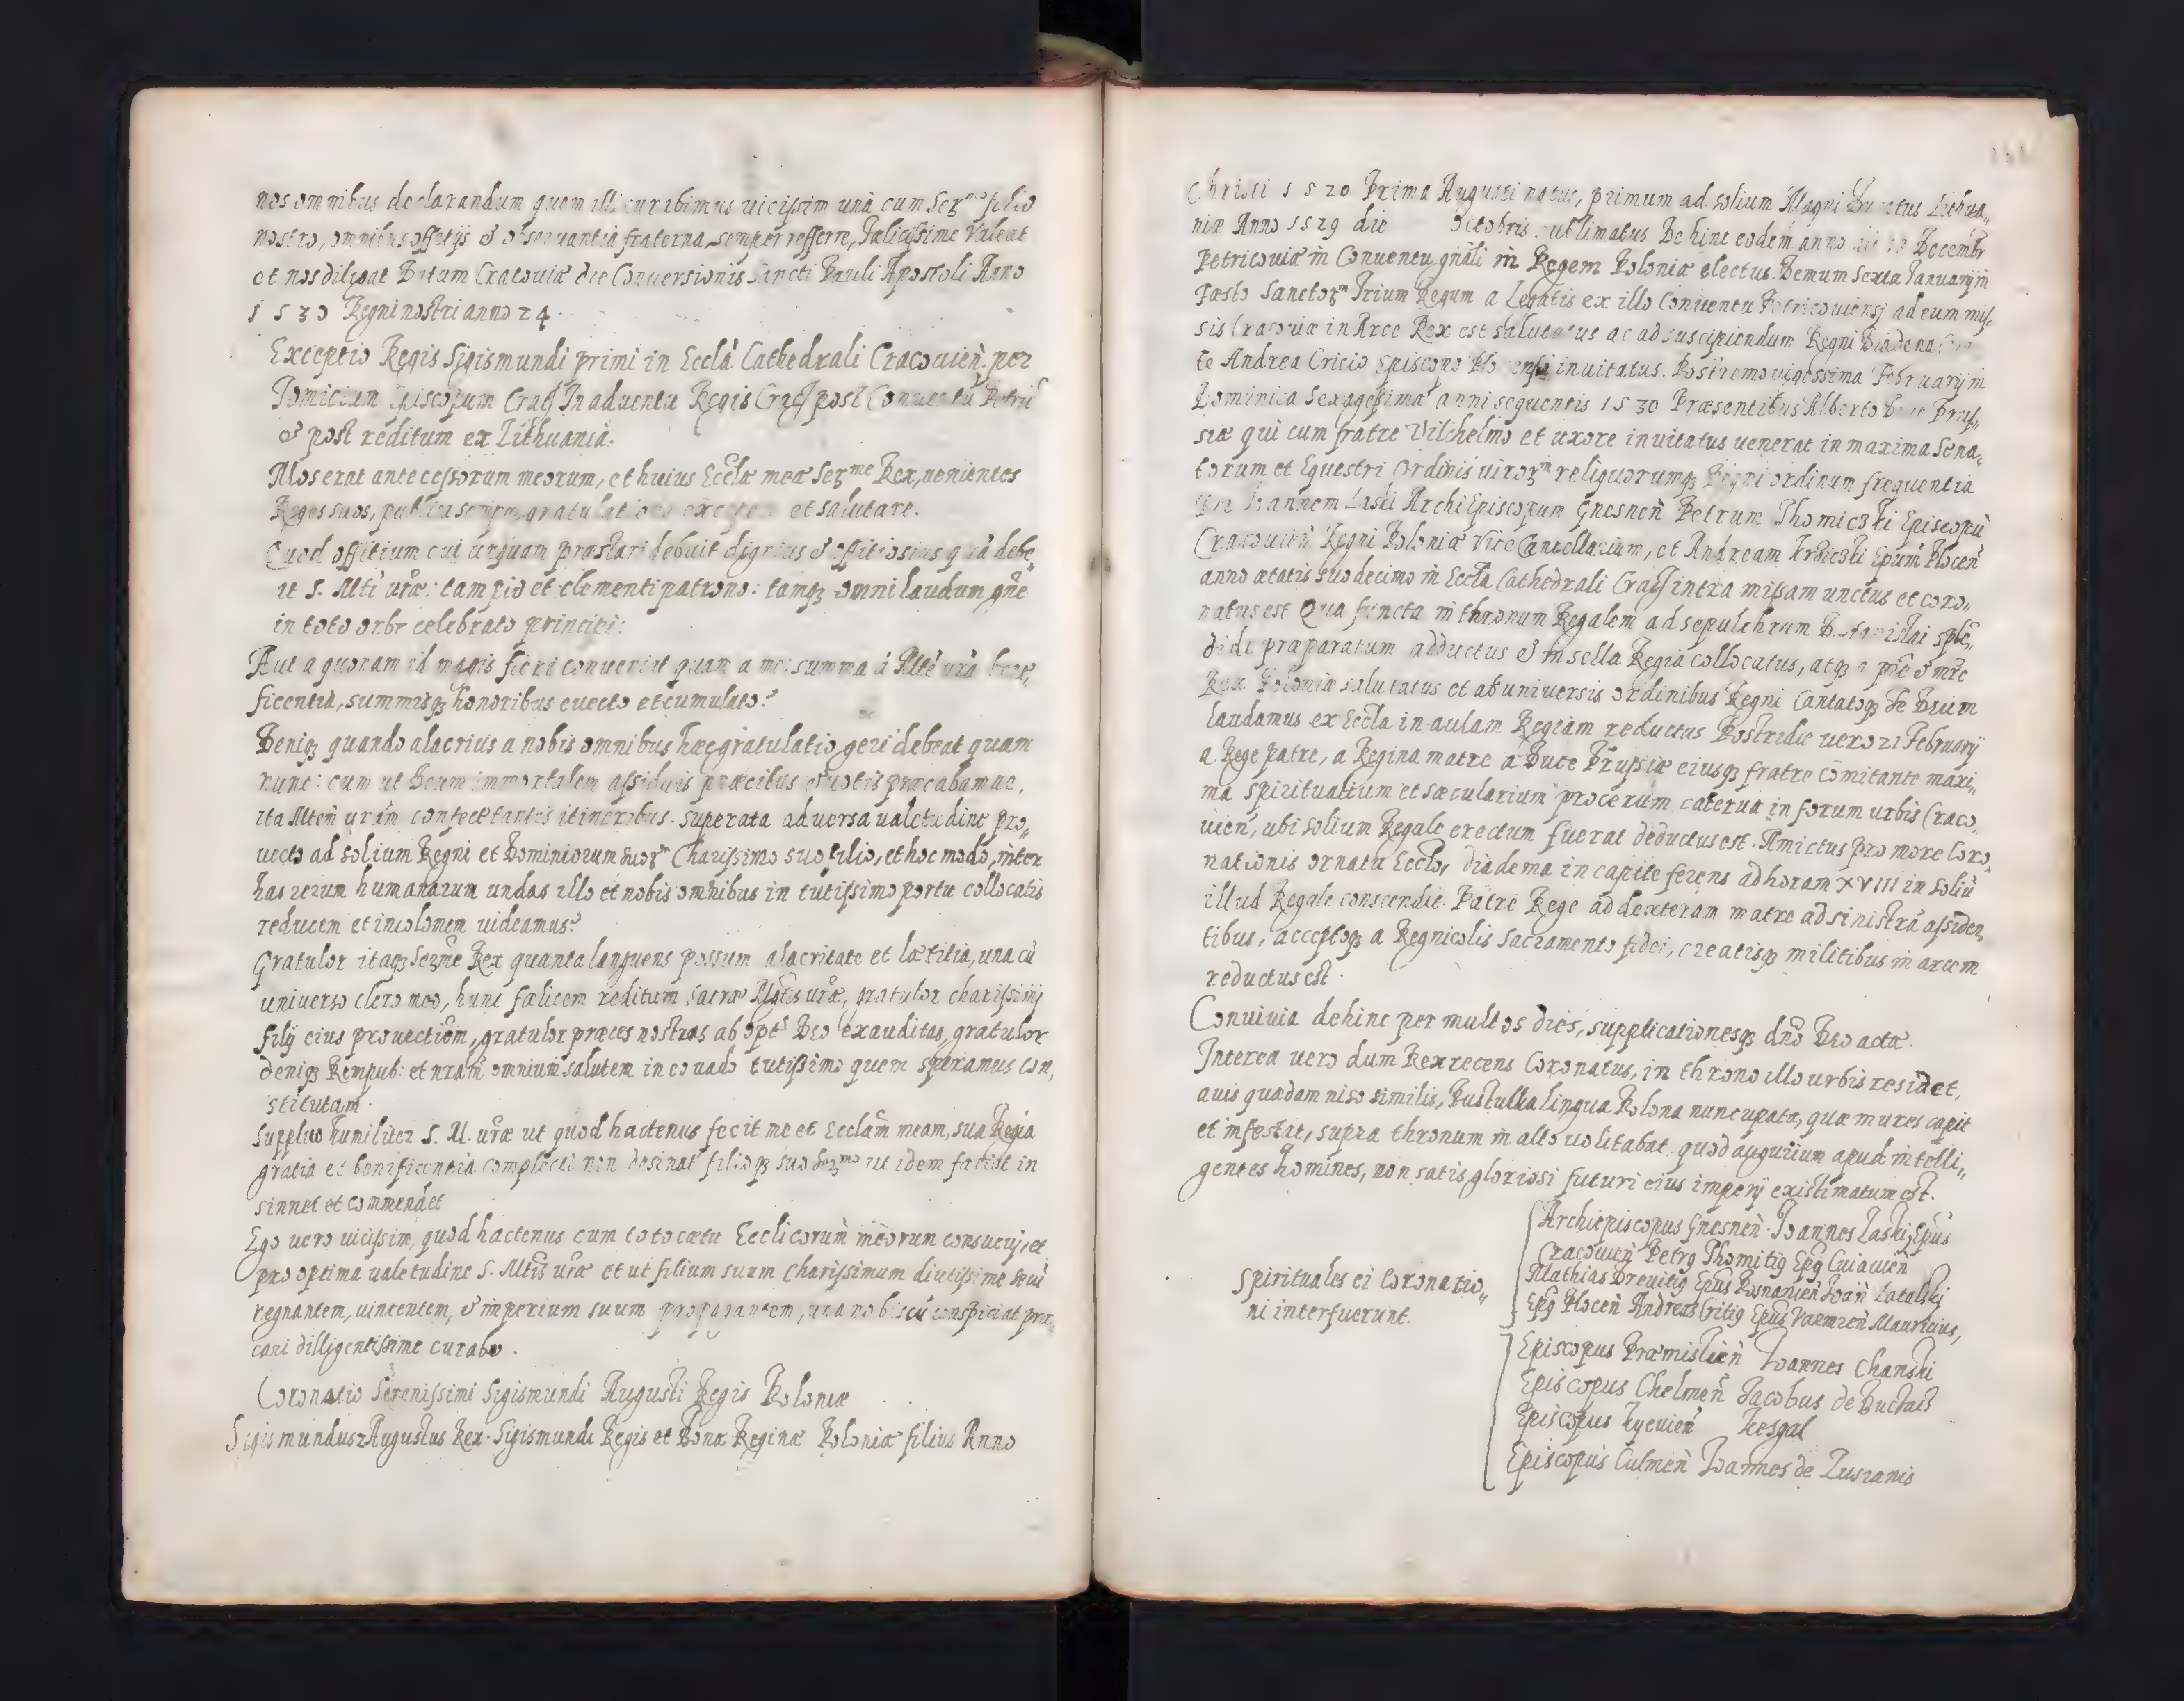 nos omnibus declarandum quem illi curabimus uicissim unà cum Serᵐᵒ filio
nostro, omnibus offitijs & obseruantia fraterna semper refferre, Fælicissime Valeat
et nos diligat Datum Cracouiæ die Conuersionis Sancti Pauli Apostoli Anno
1530 Regni nostri anno 24.
Exceptio Regis Sigismundi primi in Eccłà Cathedrali Cracouień. per
Tomicium Episcopum Crac̃ In aduentu Regis Crac̃ post Conuentũ Petric̃
& post reditum ex Lithuania.
Mos erat antecessorum meorum, et huius Eccłæ meæ Serᵐᵉ Rex, uenientes
Reges suos, publica semper gratulatione excipere et salutare.
Quod offitium cui unquam præstari debuit dignius & offitiosius quã debe„
ut S. Mti ur̃æ: tam pio et clementi patrono: tamqȝ omni laudum gñe
in toto orbe celebrato principi:
Aut a quonam id magis fieri conueniat quam a me: summa à Mte urã bene„
ficentia, summisqȝ honoribus euecto et cumulato?
Deniqȝ quando alacrius a nobis omnibus hæc gratulatio geri debeat quam
nunc: cum ut Deum immortalem assiduis præcibus & uotis præcabamur,
ita Mtem urãm confectantis itineribus. superata aduersa ualetudine pro„
uecto ad solium Regni et Dominiorum suorᵐ Charissimo suo filio, et hoc modo, inter
has rerum humanarum undas illo et nobis omnibus in tutissimo portu collocatis
reducem et incolomem uideamus?
Gratulor itaqȝ Serme Rex quanta languens possum alacritate et lætitia, una cũ
uniuerso clero meo, hunc fælicem reditum sacræ Mtis uræ, gratulor charissimi
filij eius prouectiõm, gratulor præces nostras ab opt̃ Deo exauditas, gratulor
deniqȝ Rempub: et nrãm omnium salutem in eo uado tutissimo quem speramus con„
stitutam.
Supplico humiliter S. M. uræ ut quod hactenus fecit me et Ecclãm meam, sua Regia
gratia et benificentia complecti non desinat filioqȝ suo Serᵐᵒ ut idem faciat in
sinnet et commendet
Ego uero uicissim, quod hactenus cum toto cœtu Ecclicorũm meorum consueui, et
pro optima ualetudine S. Mtis uræ et ut filium suum charissimum diutissime secũ
regnantem, uincentem, & imperium suum propagantem, una nobiscũ conspiciat præ„
cari dilligentissime curabo.
Coronatio Serenissimi Sigismundi Augusti Regis Poloniæ
Sigismundus Augustus Rex. Sigismundi Regis et Bonæ Reginæ Poloniæ filius Anno
Christi 1520 Prima Augusti natus, primum ad solium Magni Ducatus Lithua„
niæ Anno 1529 die Octobris sublimatus Dehinc eodem anno Decembr
Petricouiæ in Conuentu gñali in Regem Poloniæ electus. Demum Sexta Januarij in
Fæsto Sanctorᵐ Trium Regum a Legatis ex illo Conuentu Petricouiensi ad eum mis„
sis Cracouiæ in Arce Rex est salutatus ac ad suscipiendum Regni Diadema
te Andrea Cricio Episcopo Plocensi inuitatus. Postremo uigessima Februarij in
Dominica Sexagesimæ anni sequentis 1530 Præsentibus Alberto Duce Prus„
siæ qui cum fratre Vilchelmo et uxore inuitatus uenerat in maxima Sena„
torum et Equestri Ordinis uirorᵐ reliquorumqȝ Regni ordinum frequentia
per Joannem Laski ArchiEpiscopum Gnesneñ Petrum Thomiczki Episcopũ
Cracouień Regni Poloniæ ViceCancellarium, et Andream Krziczki Epũm Ploceñ
anno ætatis suo decimo in Eccła Cathedrali Crac̃ intra missam unctus et coro„
natus est Qua functa in thronum Regalem ad sepulchrum D. Stanislai splẽ„
dide præparatum adductus & in sella Regia collocatus, atqȝ a pře & mře
Rex Poloniæ salutatus et ab uniuersis ordinibus Regni Cantatoqȝ Te Deum
laudamus ex Eccła in aulam Regiam reductus Postridie uero 21 February
a Rege patre, a Regina matre a Duce Prussiæ eiusqȝ fratre comitante maxi„
ma spiritualium et sæcularium procerum caterua in forum urbis Craco„
uień, ubi solium Regale erectum fuerat deductus est. Amictus pro more Coro„
nationis ornatu Eccło, diadema in capite ferens ad horam XVIII in soliũ
illud Regale conscendit. Patre Rege ad dexteram matre ad sinistrã assiden„
tibus, acceptoqȝ a Regnicolis Sacramento fidei, creatisqȝ militibus in arcem
reductus est.
Conuiuia dehinc per multos dies, supplicationesqȝ dño Deo actæ.
Interea uero dum Rex recens Coronatus, in throno illo urbis residet,
auis quædam niso similis, Pustulka lingua Polona nuncupata, quæ mures capit
et infestat, supra thronum in alto uolitabat quod augurium apud intelli„
gentes homines, non satis gloriosi futuri eius imperij existimatum est.
Spirituales ei Coronatio„
ni interfuerunt.
Archiepiscopus Gnesneñ. Joannes Laski, Epũs
Cracouień Petrꝯ Thomitiꝯ Epꝯ Cuiauień
Mathias Dreuitiꝯ Epũs Posnanień Joañ Latalski
Epꝯ Ploceñ Andreas Critiꝯ Epũs Varmień Mauricius,
Episcopus Præmislień Joannes Chanski
Episcopus Chelmeñ Jacobus de Buczacz
Episcopus Kyeuień Kesgal
Episcopus Culmeñ Joannes de Lusianis